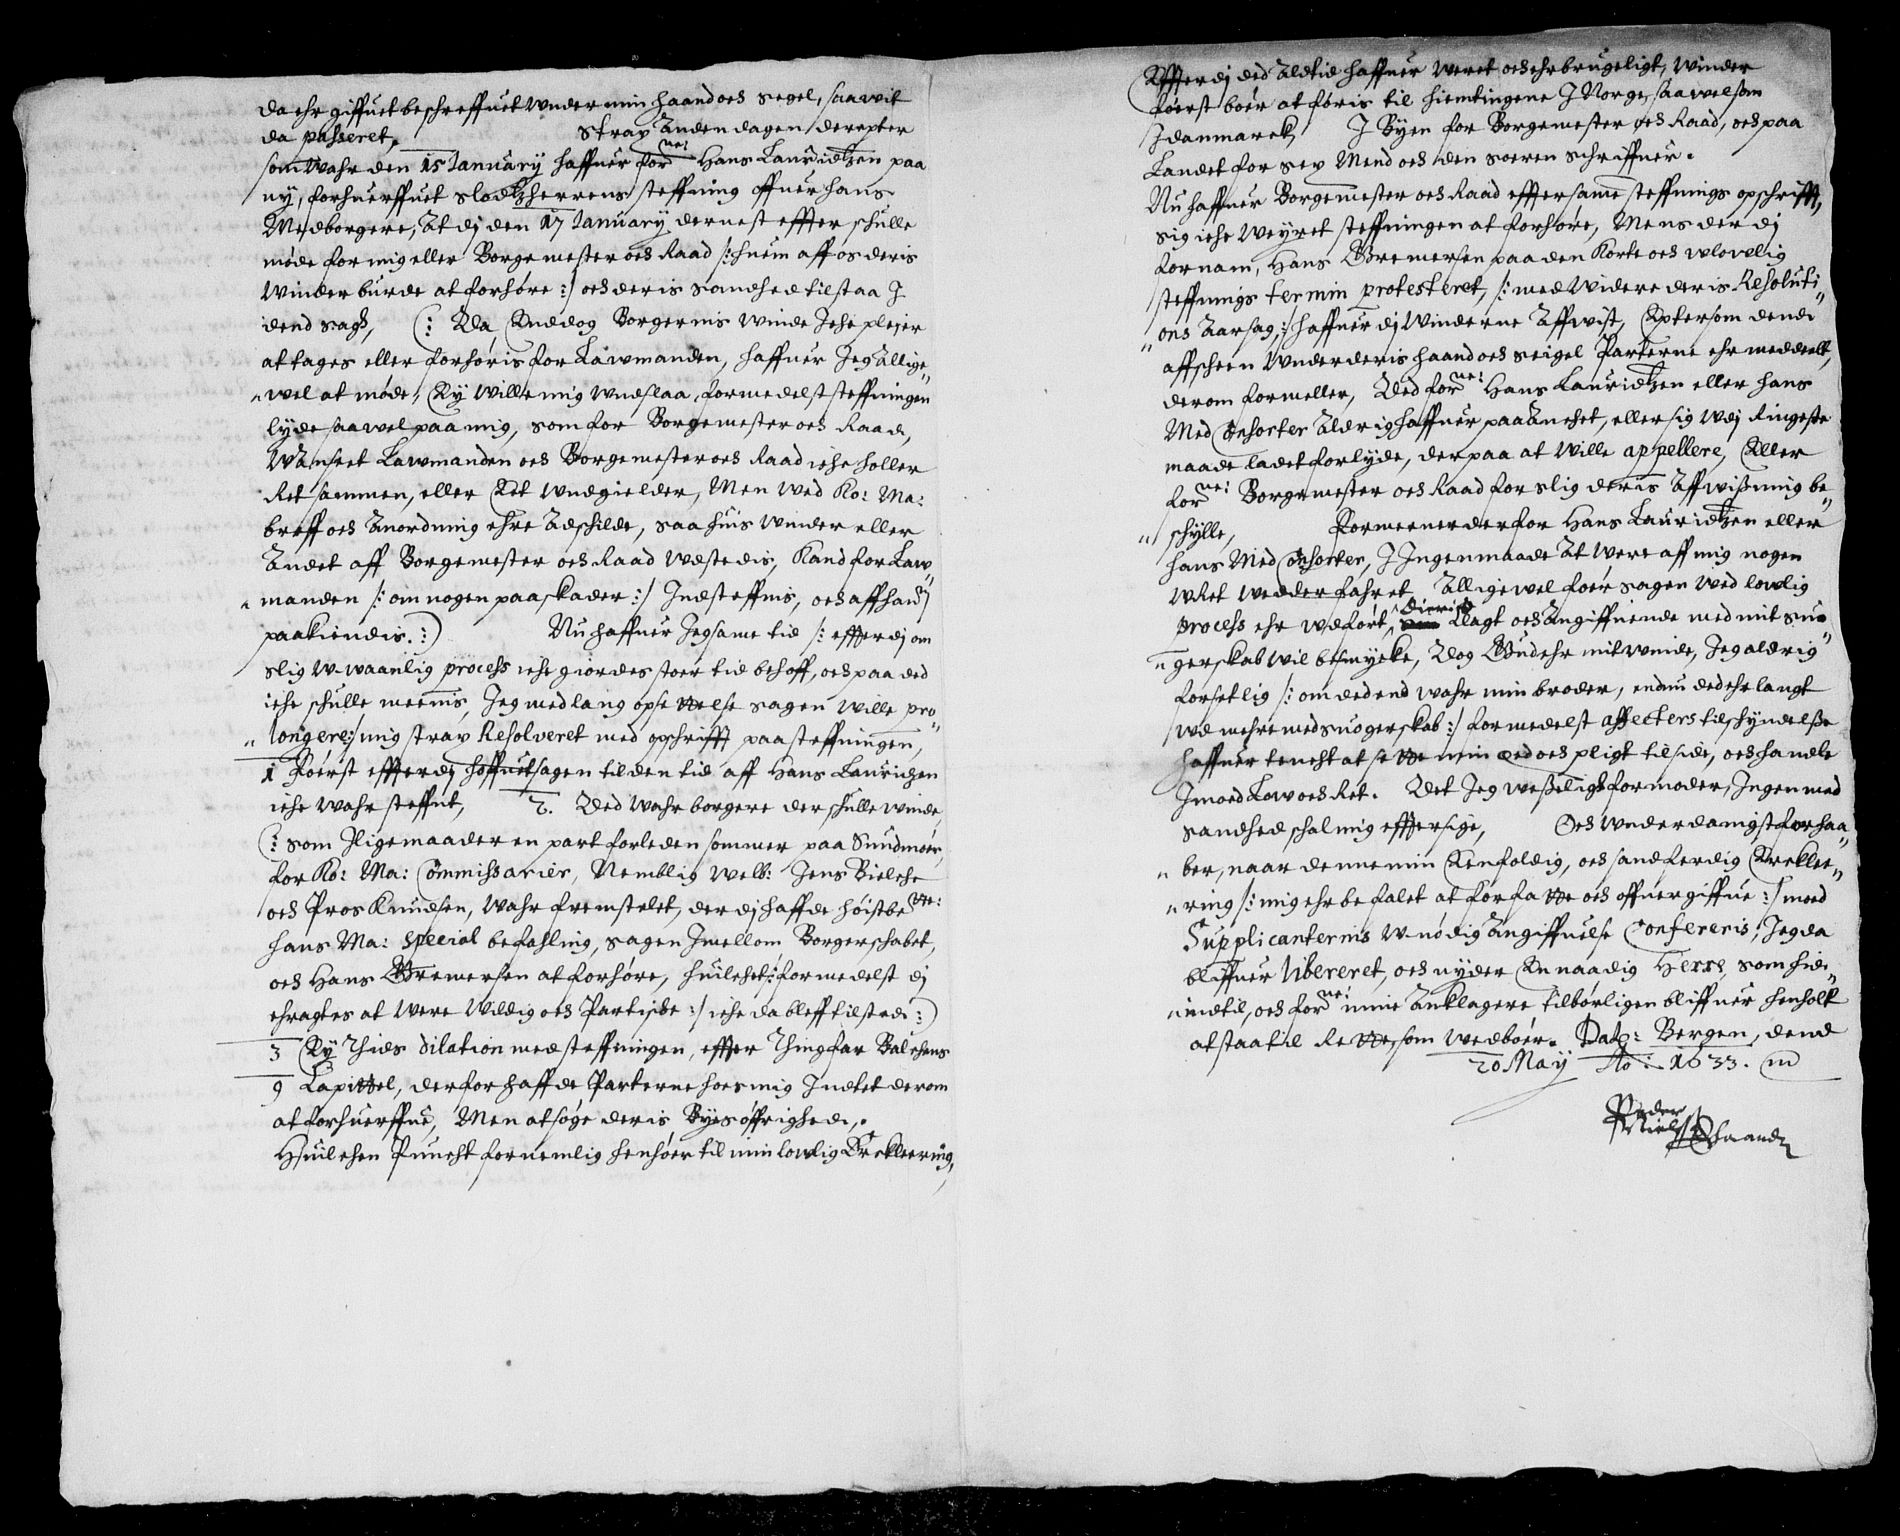 da ehr giffuet beschreffuet Under min haand och segel, saa vit
da passeret, Strax Anden dagen derepter
som Wahr den 15 January haffuer for ne: Hans Lauridtzen paa
ny, forhuerffuet Slodtzherrens steffning offuer hans
Medborgere, At dj den 17 January dernest effter schulle
møde for mig eller Borgemester och Raad /: huem aff os deris
Winder burde at forhøre :/ och deris Sandhed tilstaa J
dend sag, (: Da Enddog Borgernis Winde Iche plejer
at tages eller forhøris for Lawmanden, haffuer Jeg Allige„
„wel at møde, Ey Wille mig Undslaa, formedelst steffningen
lyde saa vel paa mig, som for Borgemester och Raad,
Wanseet Lawmanden och Borgemester och Raad iche holler
Ret sammen, eller Ret Undgielder, Men Wed Ko: Ma:
breff och Anordning ehre Adschilde, saa huis Winder eller
Andet aff Borgemester och Raad Udstedis, Kand for Law„
„manden /: om nogen paaskader :/ Indsteffnis, och aff hand
paakiendis. :) Nu haffuer Jeg same tid /: effterdj om
slig U-waanlig process iche giordes stoer tid behoff, och paa ded
iche schulle meenis, Jeg med lang opsettelse sagen Wille pro„
„longere :/ mig strax Resolveret med opschrifft paa steffningen,
1 Føerst effterdj hoffuetsagen til den tid aff Hans Lauridzen
iche Wahr steffnt, 2. Ded Wahr borgere der schulle Winde,
(: som Iligemaader en part forleden sommer paa Sundmøer,
for Ko: Ma: Commissarier, Nemblig Welb: Jens Bielche
och Pros Knudsen, Wahr fremstelet, der dj haffde høistbe te:
hans Ma: Special befahling, sagen Imellom Borgerschabet,
och Hans Gremersen at forhøre, huilchet :/ formedelst dj
ehragtes at Were Wildig och Partiske :/ iche da bleff tilsted :)
3 Ey Thids dilation med steffningen, effter Thingfar Balchens
9 Capittel, derfor haffde Parterne hoes mig Indtet derom
at forhuerffue, Men at søge deris Byes øffrighed,.
Huilchen Puncht fornemlig henhøer til min lowlig Erklering,
Effterdj ded Altid haffuer Weret och ehr brugeligt, Winder
føerst boer at føris til hiemtingene J Norge, saa wel som
J danmarck, J Byen for Borgemester och Raad, och paa
Landet for sex Mend och den soeren schriffuer.
Nu haffuer Borgemester och Raad effter same steffnings opschrifft,
sig iche Weyret steffningen at forhøre, Mens der dj
fornam, Hans Gremersen paa den Korte och ulowlig
steffnings termin protesteret, /: med Widere deris Resoluti„
„ons Aarsag :/ haffuer dj Winderne Affwist, Eptersom dend
affscheen Under deris haand och seigel Parterne ehr meddeelt,
derom formeller, Ded for ne: Hans Lauridtzen eller hans
Med Consorter Aldrig haffuer paa Anchet, eller sig Udj Ringeste
maade ladet forlyde, der paa at Wille appellere, Eller
for ne: Borgemester och Raad for slig deris Affwißning be„
„schylle, Formeener derfor Hans Lauridtzen eller
hans Med Consorter, J Ingenmaade At Were aff mig nogen
URet Wedderfahret, Alligewel foer sagen Wed lowlig
process ehr Udført, dieris Klagt och Angiffuende med mit suo„
„gerskab Wil besmycke, Dog Gud ehr mit Winde, Jeg aldrig
forsetlig /: om ded end Wahr min broder, endnu ded ehr langt
Ud mehre med suogerskab :/ formedelst affecters tilschyndelße
haffuer tencht at sette min Eed och pligt til side, och handle
Imoed Low och Ret. Det Jeg Weßeligst formoder, Ingen med
sandhed schal mig efftersige, Och Underdanigst forhaa„
„ber, naar denne min Eenfoldig, och sandferdig Erklee„
„ring /: mig ehr befalet at forfatte och offuergiffue :/ imoed
Supplicanternis U-nødig Angiffuelse Confereris, Jeg da
bliffuer libereret, och nyder En naadig Herre, som hid„
„indtil, och for ne: mine Anklagere tilbørligen bliffuer henholt
at staa til Rette, som Wedboer. Dat: Bergen, dend
20 May Ao: 1633.
Peder
Nielsen
haand